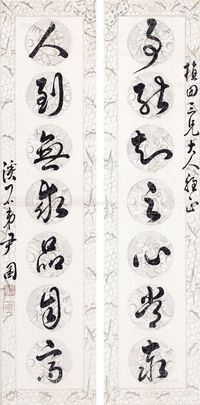 植田三兄大人雅正
事能知足心常泰
人到無求品自高
弟尹